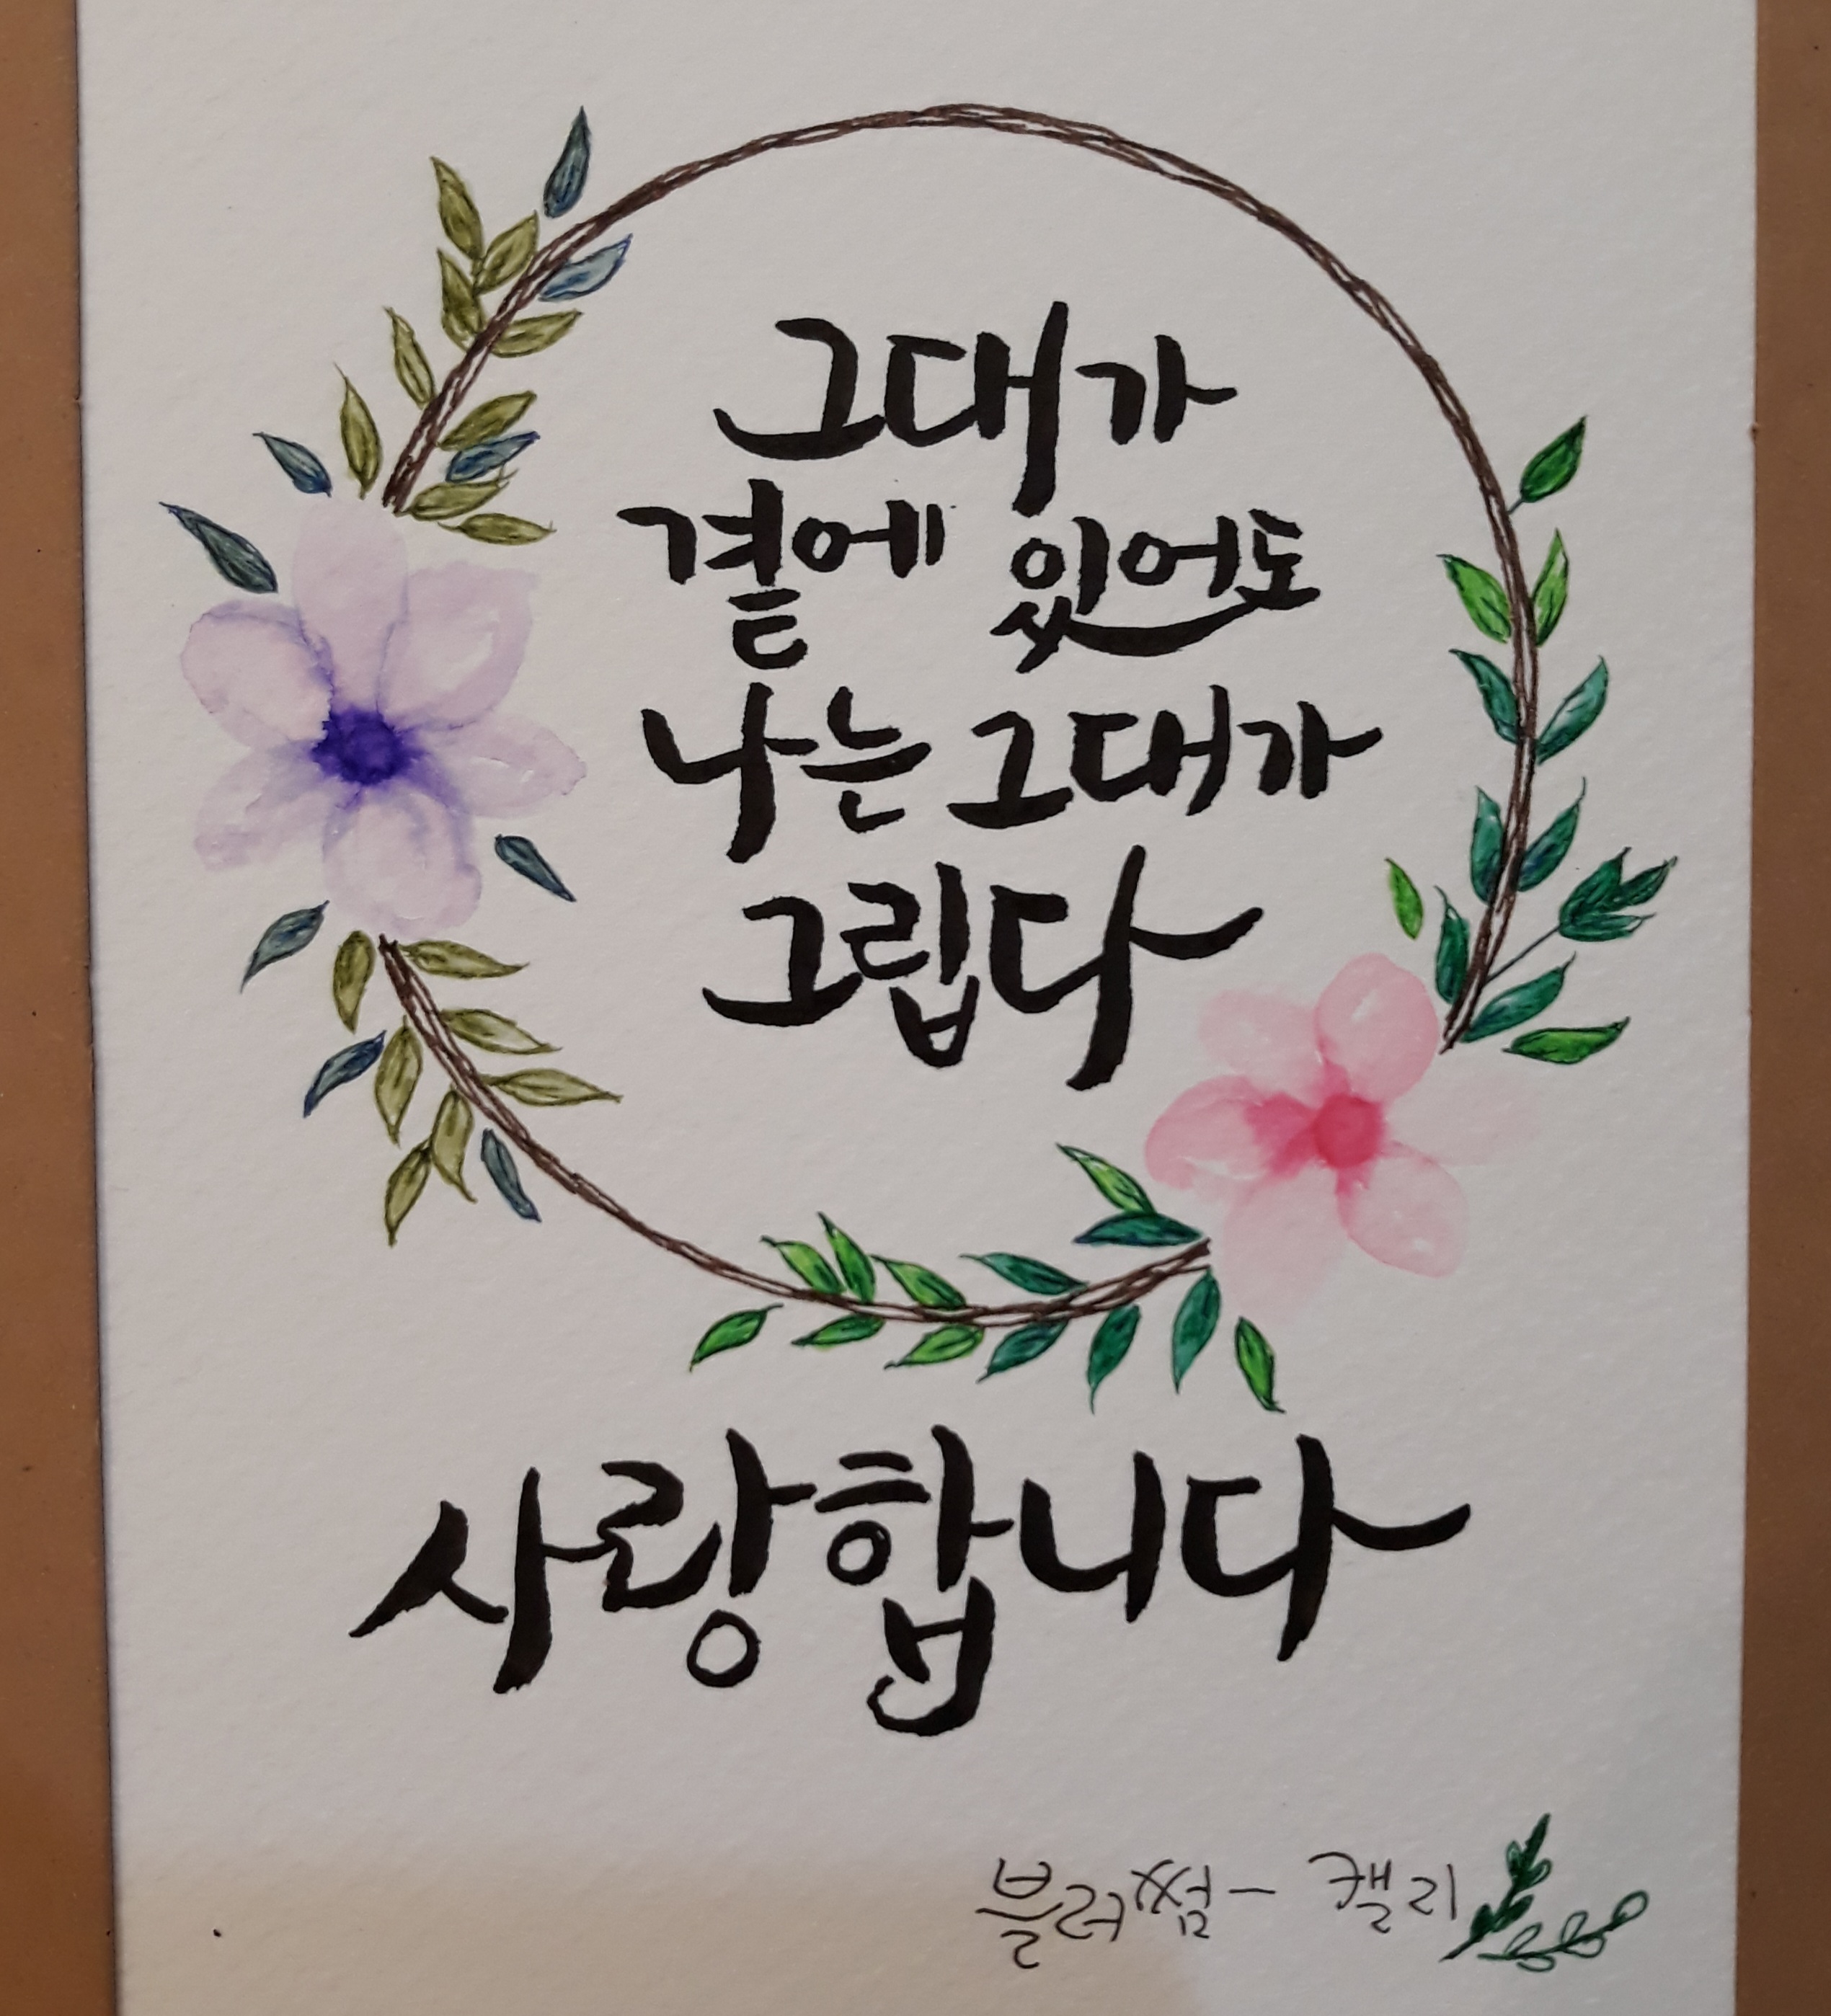 그대가
곁에 있어도
나는 그대가
그립다
사랑합니다
블러썸 - 캘리